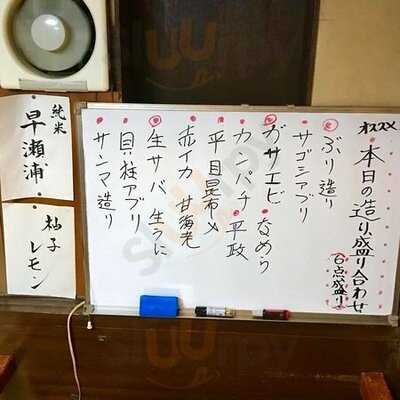 オススメ
本日の造り盛り合わせ
6点盛り
ぶり造り
サゴシアブリ
ガサエビ なめら
カンパチ 平政
平目昆布〆
赤イカ 甘海老
生サバ 生うに
貝柱アブリ
サンマ造り
純米
早瀬浦
柚子
レモン